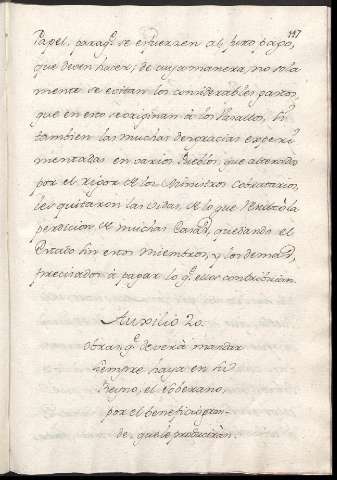 117
Papel, paraq.e se esfuerzen al justo pago,
que deven hacer; de cuya manera, no sola
mente se evitan los considerables gastos,
que en esto se originan à los Vasallos, si
tambien las muchas desgracias experi
mentadas en varios Pueblos, que alterados
por el rigor de los Ministros Cobratarios,
les quitaron las vidas, de lo que resultò la
perdicion de muchas Casas, quedando el
Estado sin estos miembros, y los demas,
precisados à pagar lo q.e ellos contribuian.
Auxilio 20.
Obra, q.e deverà mandar
siempre haya en su
Reyno, el Soberano,
por el beneficio gran-
de, que le produciràn.